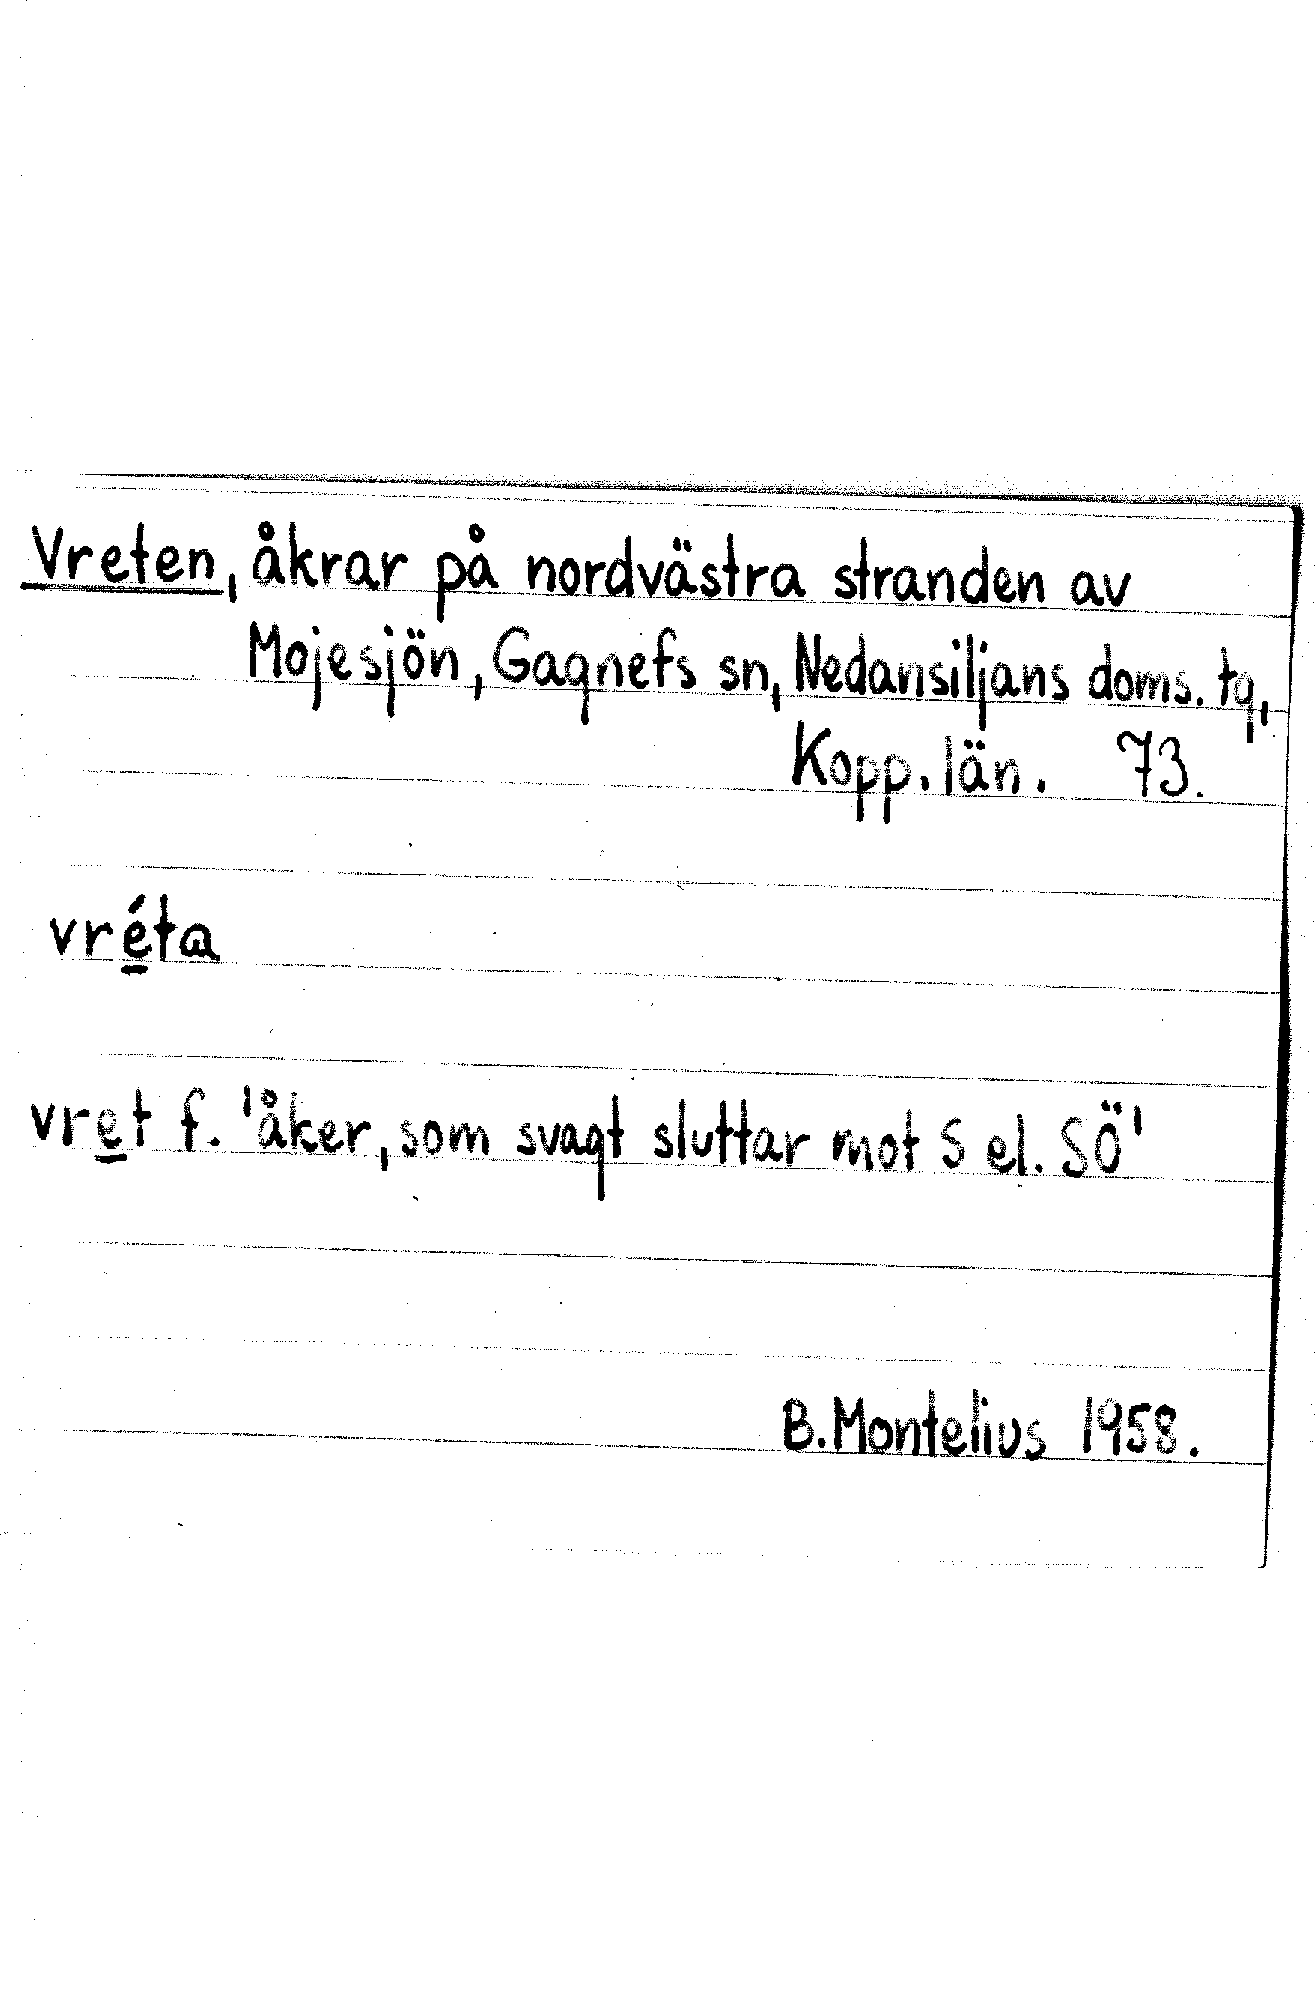 Vreten, åkrar på nordvästra stranden av
Mojesjön, Gagnefs sn, Nedansiljans doms. tg,
Kopp. län. 73.
vré̱ta
vre̱t f. 'åker, som svagt sluttar mot S el. SÖ'
B. Montelius 1958.